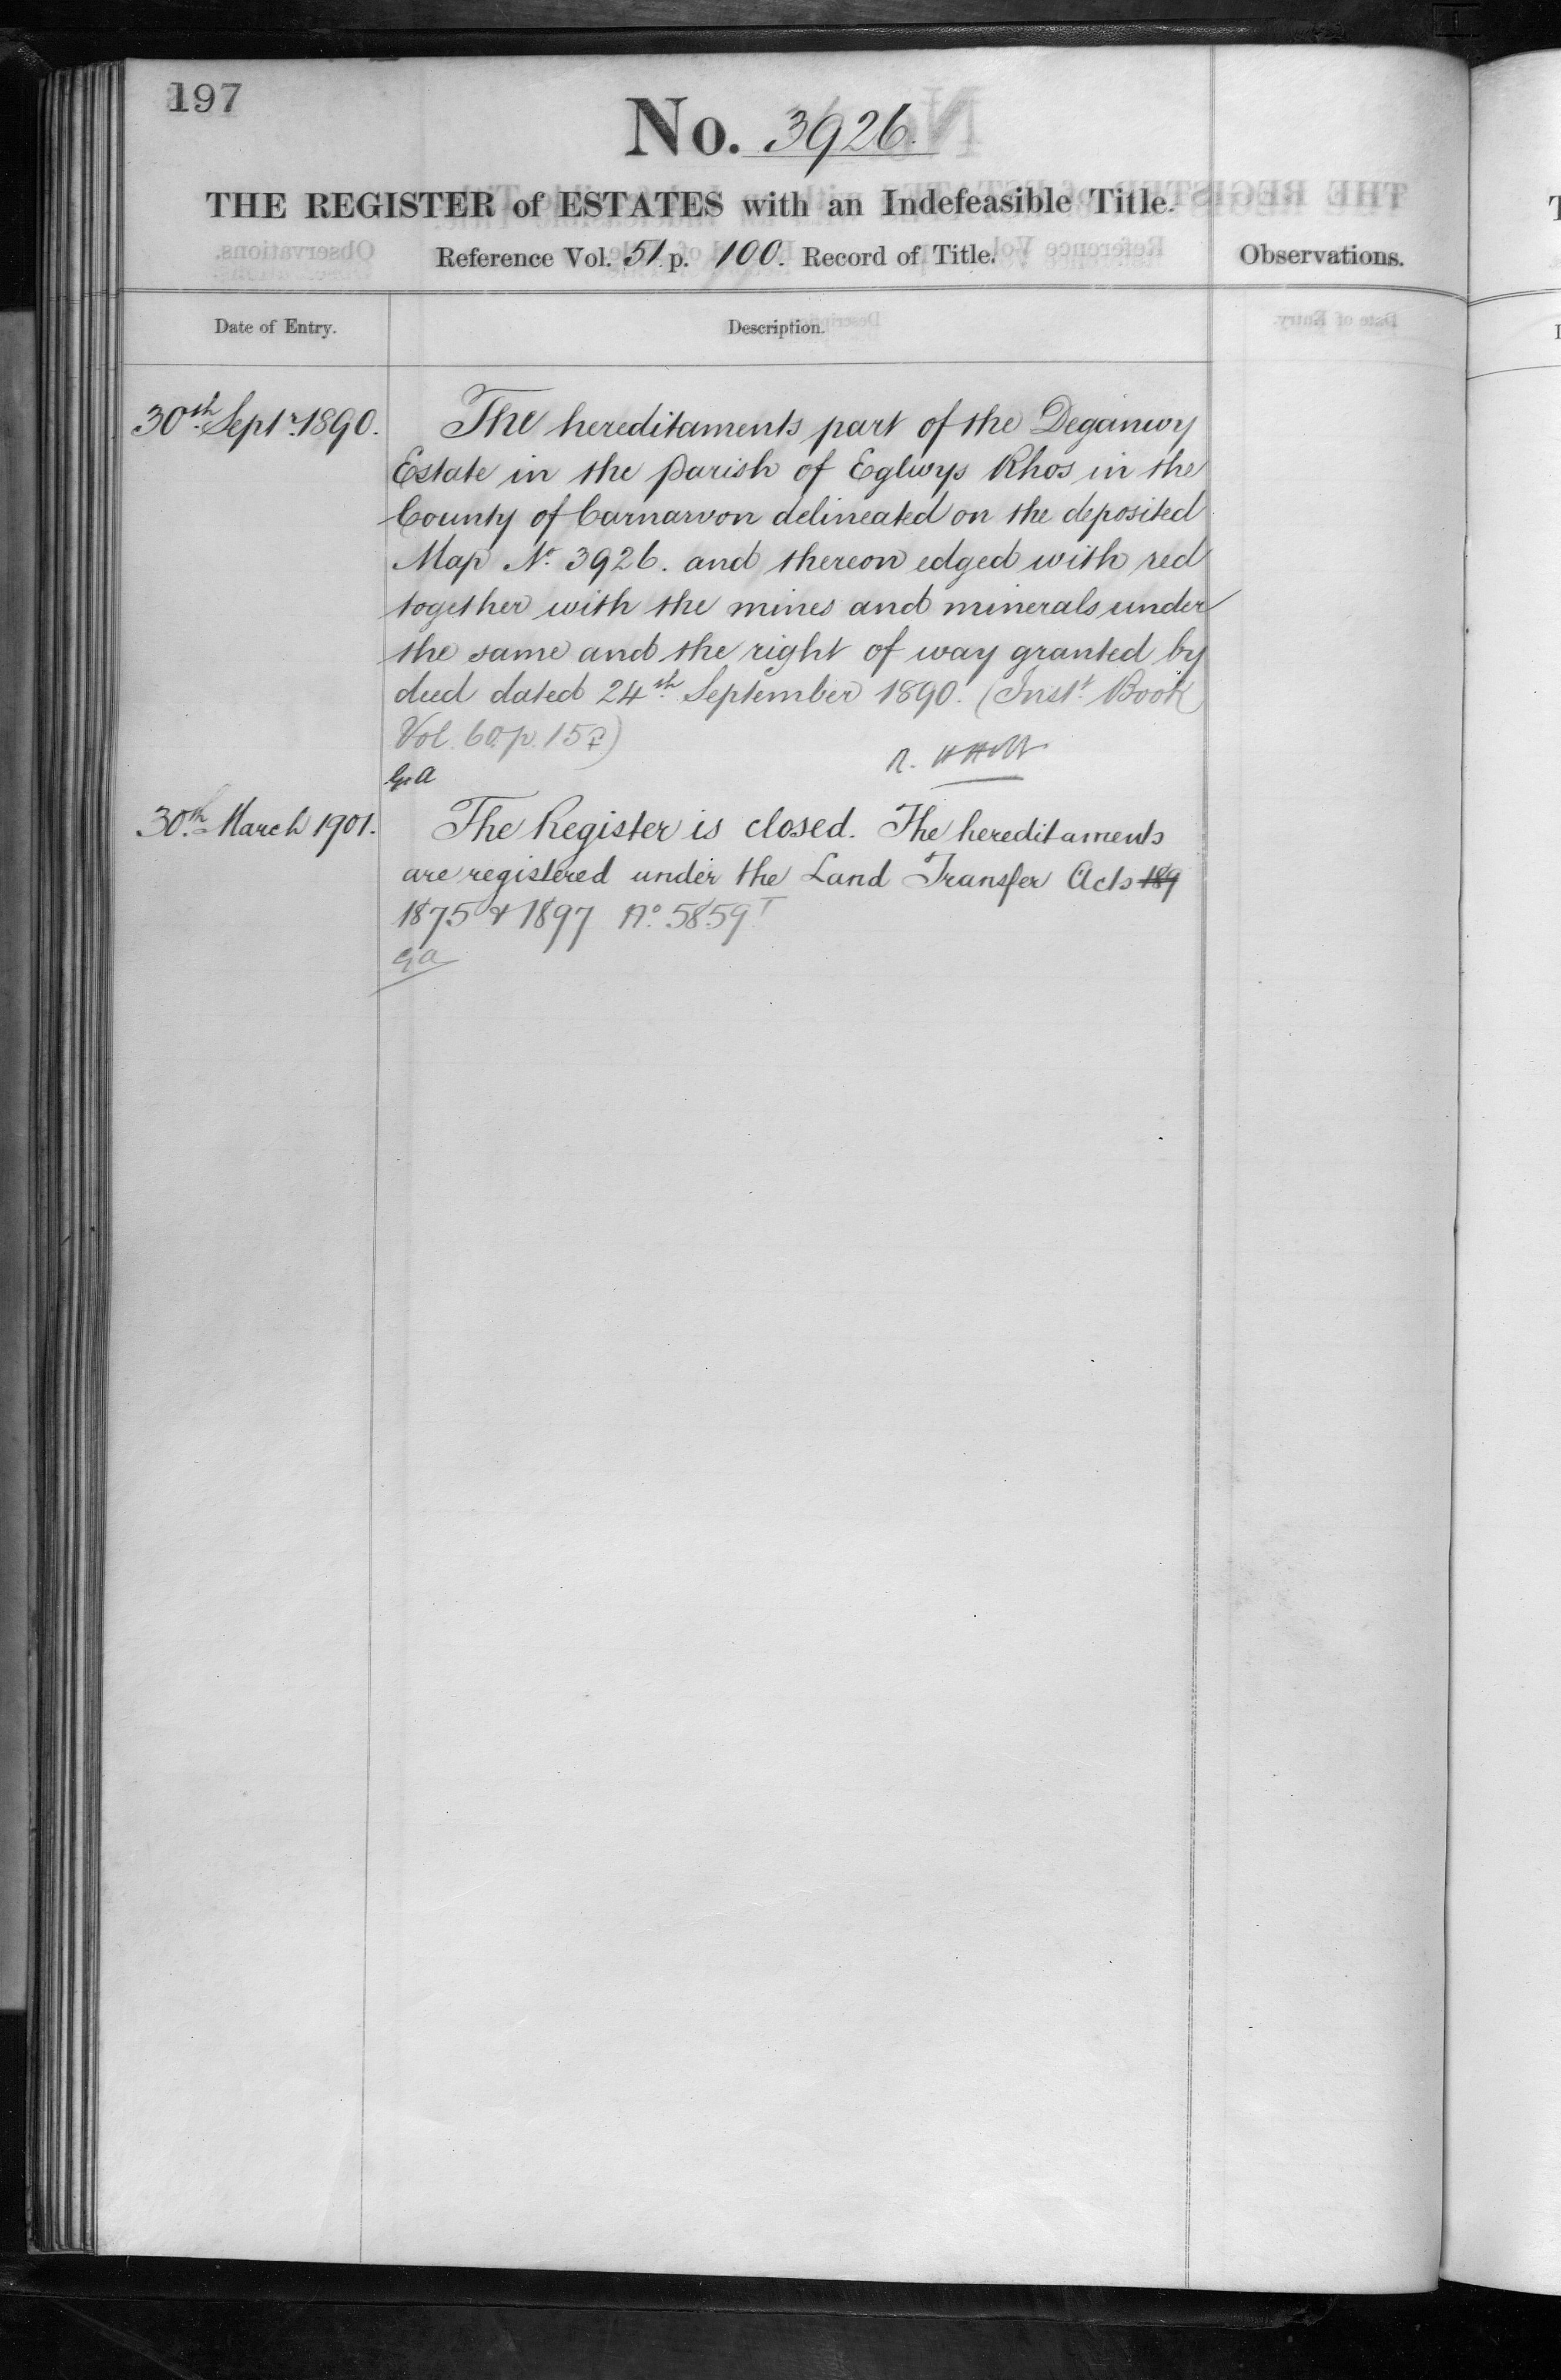 197
No. 3926.
THE REGISTER of ESTATES with an Indefeasible Title.
Reference Vol. 51 p. 100. Record of Title.
Observations.
Date of Entry.
Description.
30th Septr. 1890.
The hereditaments part of the Deganwy
Estate in the parish of Eglwys Rhos in the
County of Carnarvon delineated on the deposited
Map No. 3926. and thereon edged with red
together with the mines and minerals under
the same and the right of way granted by
deed dated 24th September 1890. (Inst. Book
Vol. 60. p.
30th March 1901.
The Register is closed. The hereditaments
are registered under the Land Transfer Acts 189
1875 & 1897 No. 5859